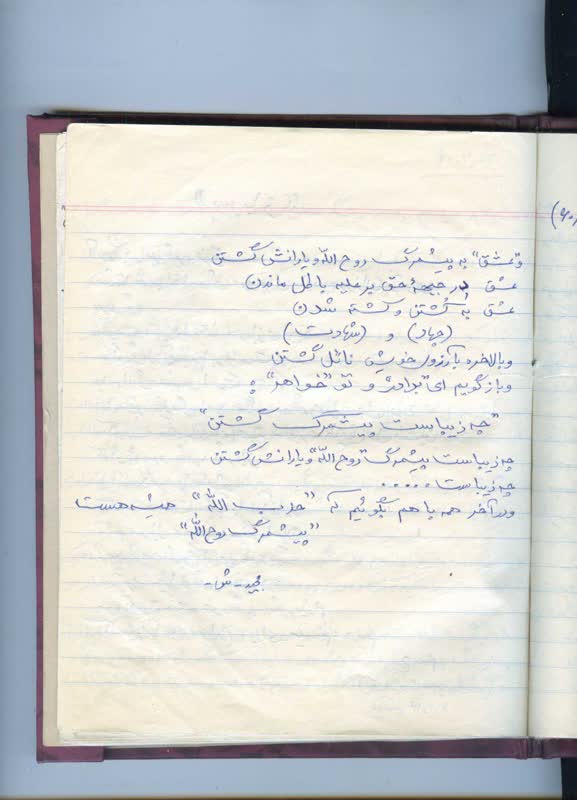 و"عشق" به پیشمرگ روح الله و یارانش گشتن
عشق در جبههٔ حق بر علیه باطل ماندن
عشق به کُشتن و کشته شدن
(جهاد) و (شهادت)
وبالاخره بآرزوی خویش نائل گشتن
و باز گویم ای "برادر" و تو "خواهر" :
"چه زیباست پیشمرگ گشتن"
چه زیباست پیشمرگ "روح الله" و یارانش گشتن
چه زیباست.....
ودر آخر همه باهم بگوئیم که "حزب الله" همیشه هست
"پیشمرگ روح الله"
ش-